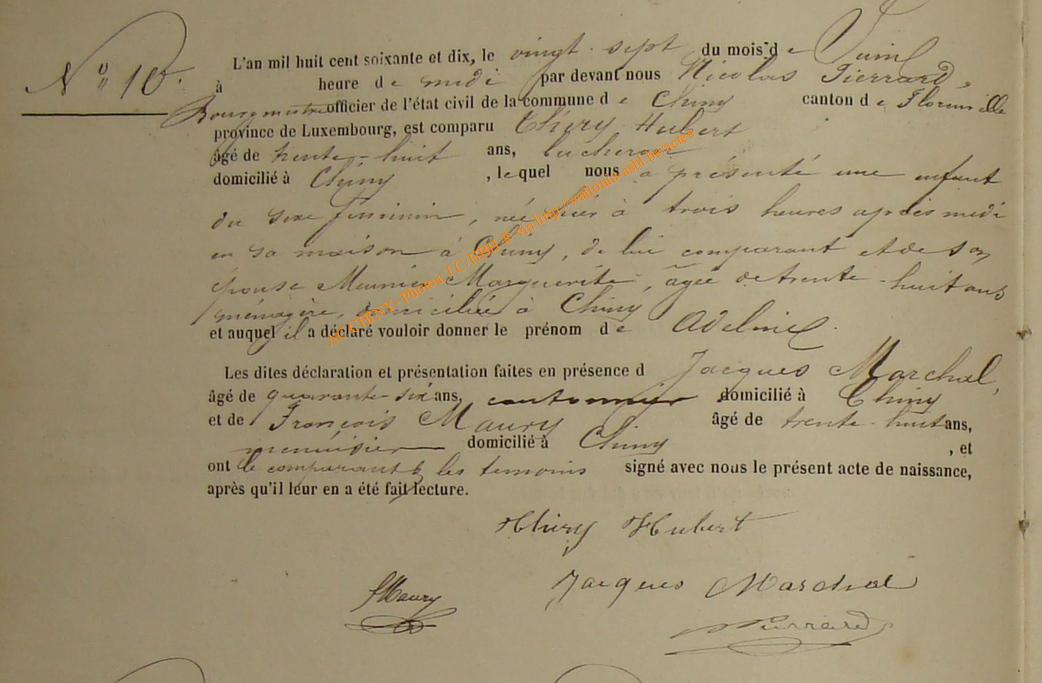 N° 10.
L'an mil huit cent soixante et dix, le vingt-sept du mois de Juin
à heure de midi par devant nous Nicolas Pierrard,
Bourgmestre officier de l'état civil de la commune de Chiny canton de Florenville
province de Luxembourg, est comparu Thiry Hubert
âgé de trente-huit ans, bucheron
domicilié à Chiny , lequel nous a présenté une enfant
du sexe féminin, née hier à trois heures après midi
en sa maison à Chiny, de lui comparant et de son
épouse Meunier Marguerite, âgée de trente-huit ans
ménagère, domiciliée à Chiny
et auquel il a déclaré vouloir donner le prénom de Adeline.
Les dites déclaration et présentation faites en présence d Jacques Marchal,
âgé de quarante-six ans, cantonnier domicilié à Chiny
et de François Maury âgé de trente-huit ans,
menuisier domicilié à Chiny , et
ont le comparant & les temoins signé avec nous le présent acte de naissance,
après qu'il leur en a été fait lecture.
Thiry Hubert
Jacques Marchal
F Maury
Pierrard